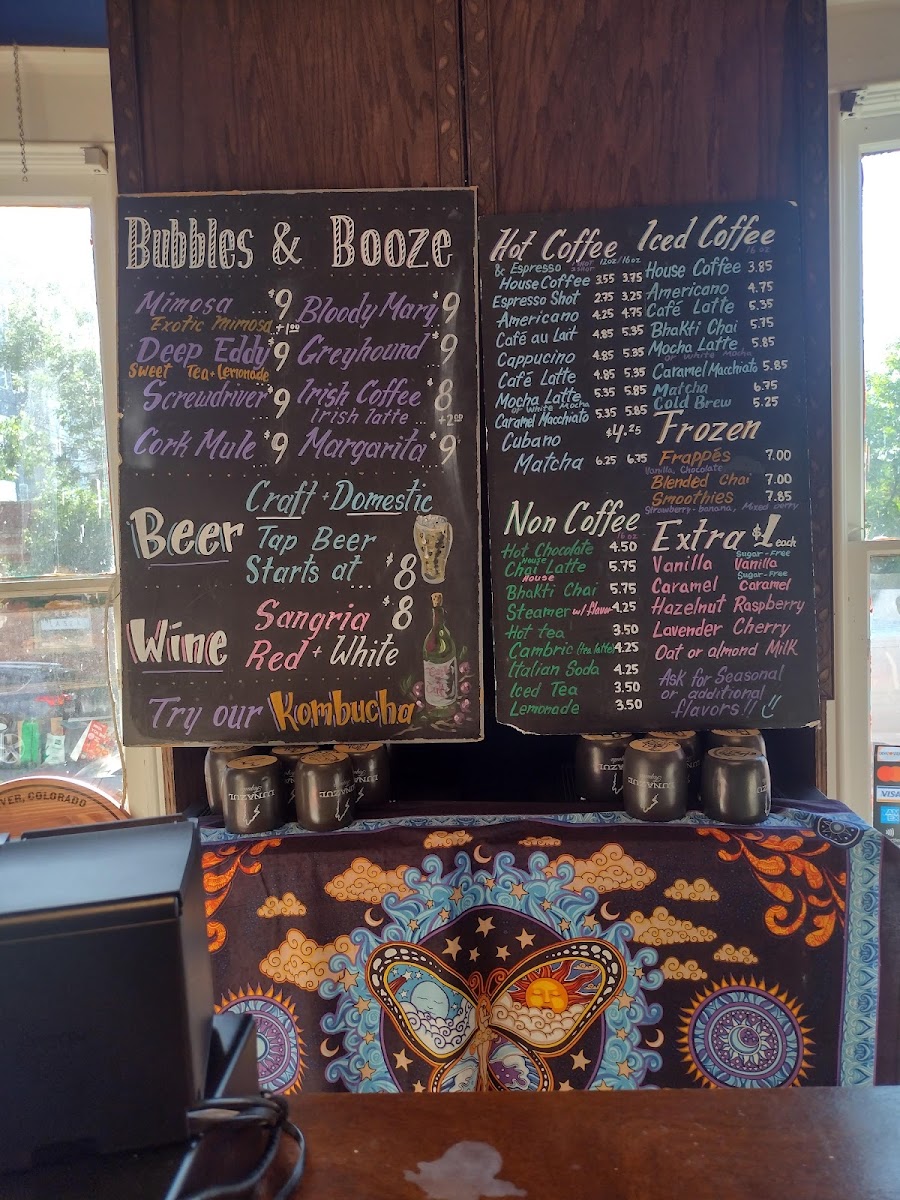 Bubbles & Booze
Mimosa $9
Exotic Mimosa +1.00
Deep Eddy $9
Sweet Tea + Lemonade
Screwdriver $9
Cork Mule $9
Bloody Mary $9
Greyhound $9
Irish Coffee $8
Irish latte ... +2.00
Margarita $9
Beer
Craft + Domestic
Tap Beer
Starts at ... $8
Wine
Sangria $8
Red + White
Try our Kombucha
Hot Coffee
& Espresso 12oz/16oz
House Coffee 3.55 3.75
Espresso Shot 2.75 3.25
Americano 4.25 4.75
Café au Lait 4.85 5.35
Cappucino 4.85 5.35
Café Latte 4.85 5.35
Mocha Latte 5.35 5.85
or White Mocha
Caramel Macchiato 5.35 5.85
Cubano $4.25
Matcha 6.25 6.75
Iced Coffee
16 oz
House Coffee 3.85
Americano 4.75
Café Latte 5.35
Bhakti Chai 5.75
Mocha Latte 5.85
or White Mocha
Caramel Macchiato 5.85
Matcha 6.75
Cold Brew 5.25
Frozen
Frappés 7.00
Vanilla, Chocolate
Blended Chai 7.00
Smoothies 7.85
Strawberry-banana, Mixed berry
Non Coffee
16 oz
Hot Chocolate 4.50
House
Chai Latte 5.75
House
Bhakti Chai 5.75
Steamer w/ flavor 4.25
Hot tea 3.50
Cambric (tea latte) 4.25
Italian Soda 4.25
Iced Tea 3.50
Lemonade 3.50
Extra $1 each
Vanilla Sugar-Free Vanilla
Caramel Sugar-Free Caramel
Hazelnut Raspberry
Lavender Cherry
Oat or almond Milk
Ask for Seasonal
or additional
flavors!!
LUNAZUL
LUNAZUL
LUNAZUL
VER, COLORADO
VISA